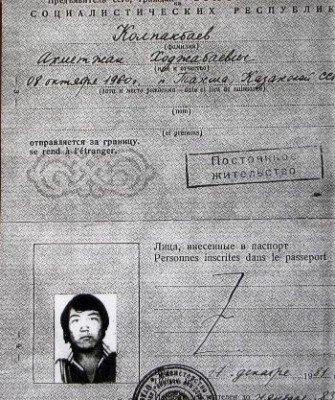 СОЦИАЛИСТИЧЕСКИХ РЕСПУБЛИК
Колпакбаев
(фамилия)
Ахметжан Ходжабаевич
(имя и отчество)
08 октября 1960
(дата и место рождения – date et lieu de naissance)
(nom)
(et prénoms)
отправляется за границу.
se rend à l'étranger.
Постоянное
жительство
Лица, внесенные в паспорт
Personnes inscrites dans le passeport
декабря 19